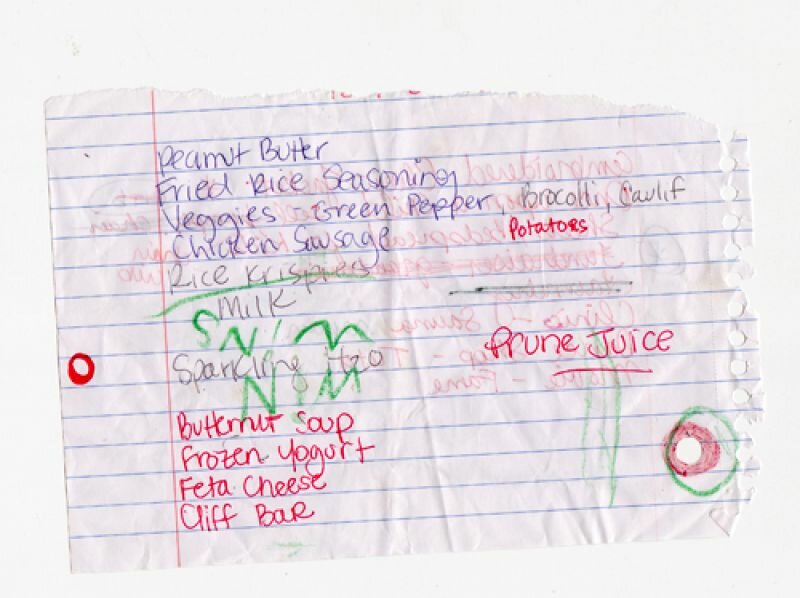 Peanut Butter
Fried Rice Seasoning
Veggies - Green Pepper, Brocolli, Caulif
Potatoes
Chicken Sausage
Rice Krispies
Milk
SNIM
Prune Juice
Sparkling H2O
NIM
Butternut Soup
Frozen Yogurt
Feta Cheese
Cliff Bar